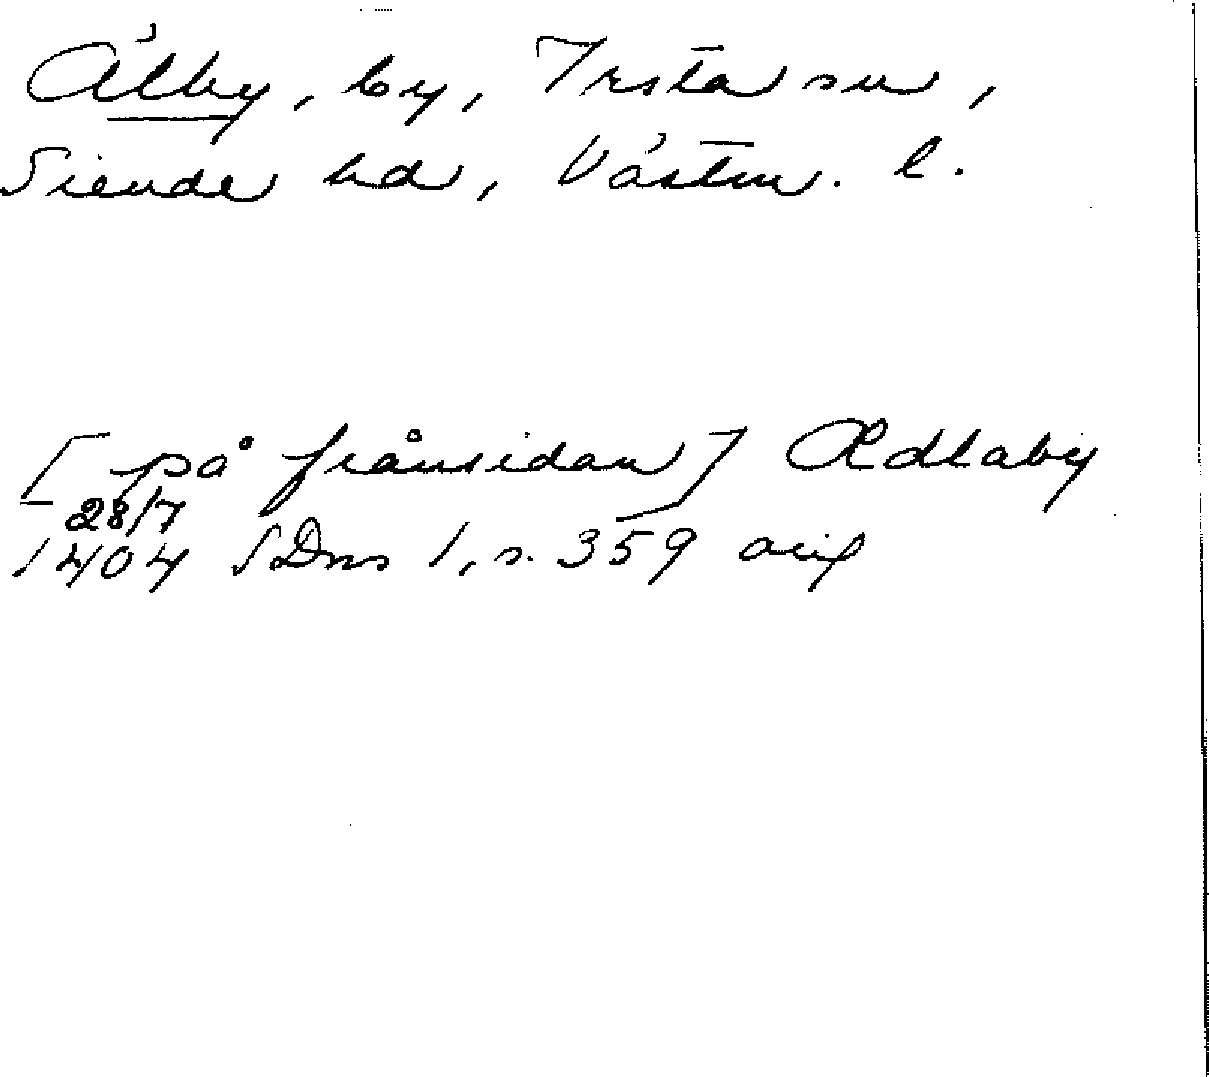 Älby, by, Irsta sn,
Siende hd, Västm. l.
[på frånsidan] Ædlaby
28/7
1404 SDns 1, s. 359 orig